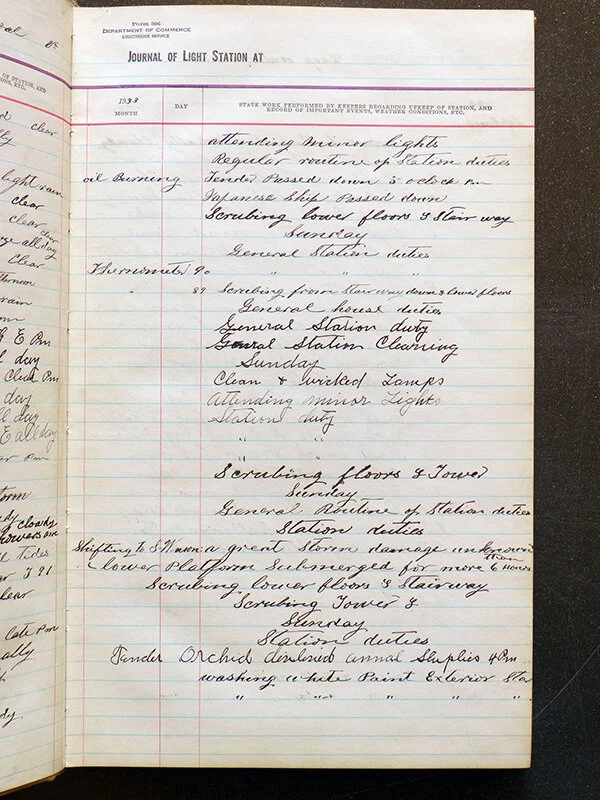 Form 506
DEPARTMENT OF COMMERCE
LIGHTHOUSE SERVICE
JOURNAL OF LIGHT STATION AT
1933
MONTH
DAY
STATE WORK PERFORMED BY KEEPERS REGARDING UPKEEP OF STATION, AND
RECORD OF IMPORTANT EVENTS, WEATHER CONDITIONS, ETC.
attending minor lights
Regular routine of Station duties
oil Burning Tender Passed down 5 oclock Pm
Japanese Ship Passed down
Scrubing lower floors & Stair way
Sunday
General Station duties
Thernometer 90 " " "
" 89 Scrubing from Stairway down & lower floors
General house duties
General Station duty
General Station Cleaning
Sunday
Clean & wicked Lamps
Attending minor Lights
Station duty
" "
Scrubing floors & Tower
Sunday
General Routine of Station duties
Station duties
Shifting to S.W. a great Storm damage unknown
Lower Platform Submerged for more than 6 Hours
Scrubing lower floors & Stairway
Scrubing Tower &
Sunday
Station duties
Tender Orchid annal Suplies 4 Pm
washing white Paint Exterior Sta
" " " " "
OF STATION, AND
ONS, ETC.
clear
light rain
clear
clear
clear
all day
clear
rain
E Pm
day
Pm
day
day
E all day
Pm
cloudy
showers am
tides
clear
late Pm